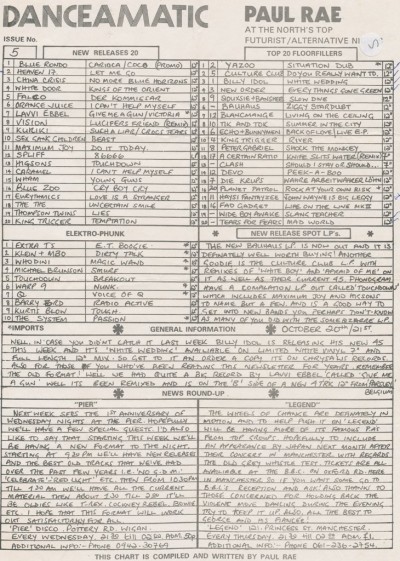 DANCEAMATIC PAUL RAE
AT THE NORTH'S TOP
FUTURIST/ALTERNATIVE
ISSUE No.
5 NEW RELEASES 20
1 BLUE RONDO CARIOCA/COCA (PROMO) 12"
2 HEAVEN 17 LET ME GO
3 CHINA CRISIS NO MORE BLUE HORIZONS
4 WHITE DOOR KINGS OF THE ORIENT
5 FALCO DER KOMMISSAR
6 ORANGE JUICE I CAN'T HELP MYSELF
7 LAVVI EBBEL GIVE ME A GUN / VICTORIA
8 VISION LUCIFERS FRIEND
9 KUKUKI SUCH A LIAR/
10 SEX GANG CHILDREN BEAST
11 MAXIMUM JOY DO IT TODAY
12 SPLIFF
13 HERONS TOUCHDOWN
14 CARAMEL I CAN'T HELP MYSELF
15 WHAM YOUNG GUNS
16 BLUE ZOO CRY BOY CRY
17 EURYTHMICS LOVE IS A STRANGER
18 THE THE UNCERTAIN SMILE
19 THOMPSON TWINS LIES
20 KING TRIGGER TEMPTATION
TOP 20 FLOORFILLERS
1 2 YAZOO SITUATION DUB
CULTURE CLUB DO YOU REALLY WANT TO..
BILLY IDOL WHITE WEDDING
NEW ORDER EVERYTHINGS GONE GREEN
SIOUXSIE+BANSHEES SLOW DIVE
BAUHAUS ZIGGY STARDUST
BLANCMANGE LIVING ON THE CEILING
TIK AND TOK SUMMER IN THE CITY
ECHO+BUNNYMEN BACK OF LOVE LIVE E.P.
KING TRIGGER RIVER
PETER GABRIEL SHOCK THE MONKEY
A CERTAIN RATIO KNIFE SLITS WATER (REMIX)
CLASH SHOULD I STAY OR SHOULD...
DEVO PEEK-A-BOO
DIE KRUPS WAHRE ARBEIT WAHRER LOHN
PLANET PATROL ROCK AT YOUR OWN RISK
HAYSI FANTAYZEE JOHN WAYNE IS BIG LEGGY
FAD GADGET LIFE ON THE LINE
WIDE BOY AWAKE SLANG TEACHER
TEARS FOR FEARS MAD WORLD
ELEKTRO-PHUNK
1 EXTRA T'S E.T. BOOGIE
2 KLEIN + MBO DIRTY TALK
3 WHODINI MAGIC WAND
4 MICHAEL BRUNSON SMURF
5 TOUCHDOWN BREAKOUT
6 WARP 9 NUNK
7 QI VOICE OF Q
8 BARRY FORD RADIO ACTIVE
9 KURTIS BLOW TOUGH
10 THE SYSTEM PASSION
NEW RELEASE SPOT LP's.
THE NEW BAUHAUS LP IS NOW OUT AND IT IS
DEFINATELY WELL WORTH BUYING! ANOTHER
GOODIE IS THE CULTURE CLUB LP WITH
REMIXES OF 'WHITE BOY' AND 'AFRAID OF ME' ON
IT AS WELL AS THEIR CURRENT 45. PHONOGRAM
HAVE A COMPILATION LP OUT CALLED 'TOUCHDOWN'
WHICH INCLUDES MAXIMUM JOY AND
TO NAME BUT A FEW AND IS A GOOD WAY TO
GET INTO NEW BANDS YOU PERHAPS DON'T KNOW
AS MANY OF YOU DID WITH THE SOME BIZZARE L.P.
*IMPORTS GENERAL INFORMATION OCTOBER 20TH/21ST
WELL, IN CASE YOU DIDN'T CATCH IT LAST WEEK BILLY IDOL IS RELEASING HIS NEW 45
THIS WEEK AND IT'S 'WHITE WEDDING' AVAILABLE ON LIMITED WHITE VINYL 7" AND
FULL LENGTH 12" MIX. SO GET TO IT AND ORDER A COPY ITS ON CHRYSALIS RECORDS.
ALSO FOR THOSE OF YOU WHO'VE BEEN READING THIS NEWSLETTER FOR YEARS! REMEMBER
THE OLD FORMAT? WELL WE HAD QUITE A BIG RECORD BY LAVVI EBBEL CALLED 'GIVE ME
A GUN' WELL ITS BEEN REMIXED AND IS ON THE 'B' SIDE OF A NEW 4 TRK 12" FROM
BELGIUM
NEWS ROUND-UP
"PIER"
NEXT WEEK SEES THE 1ST ANNIVERSARY OF
WEDNESDAY NIGHTS AT THE PIER HOPEFULLY
WE'LL HAVE A FEW SPECIAL GUESTS. I'D ALSO
LIKE TO SAY THAT STARTING THIS WEEK WE'LL
BE HAVING A NEW FORMAT TO THE NIGHT.
STARTING AT 9.30 PM WE'LL HAVE NEW RELEASES
AND THE BEST OLD TRACKS THAT WE'VE HAD
OVER THE PAST FEW YEARS I.E. NO G.D.M.
'CELEBRATE' 'RED LIGHT' ETC. THEN FROM 10.30PM
TILL 1.30 AM WE'LL HAVE ALL THE CURRENT
MATERIAL THEN ABOUT 1.30 TILL 2.30 IT'LL
BE OLDIES LIKE T-REX COCKNEY REBEL BOWIE
ETC. I HOPE THAT THIS FORMAT WILL WORK
OUT SATISFACTORY FOR ALL.
'PIER' DISCO. POTTERY RD. WIGAN.
EVERY WEDNESDAY. 9.30 TILL 02.30 ADM. 50p
ADDITIONAL INFO:- PHONE 0942-30769
"LEGEND"
THE WHEELS OF CHANGE ARE DEFINATELY IN
MOTION AND TO HELP PUSH IT ON 'LEGEND'
WILL BE HAVING MORE OF ITS FAMOUS PA'S
FROM TOP GROUPS PROBABLY TO INCLUDE
AN APPEARANCE BY JAPAN NEXT MONTH AFTER
THEIR CONCERT IN MANCHESTER WITH RECORDS.
THE OLD GREY WHISTLE TEST. TICKETS ARE ALL
AVAILABLE AT THE B.B.C. ON OXFORD RD. HERE
IN MANCHESTER SO IF YOU WANT SOME GO TO
B.B.C.'S RECEPTION AND ASK. AND THANKS TO
THOSE CONCERNED FOR HOLDING BACK THE
VIOLENT MOVE DANCING DURING THE EVENING
TRY TO KEEP IT UP. ALSO, ALL THE BEST TO
GEORGE AND HIS FIANCEE!
'LEGEND' 121, PRINCESS ST. MANCHESTER.
EVERY THURSDAY. 21.30 TILL 02.30 ADM. £1.
ADDITIONAL INFO.- PHONE 061-236-2754.
THIS CHART IS COMPILED AND WRITTEN BY PAUL RAE